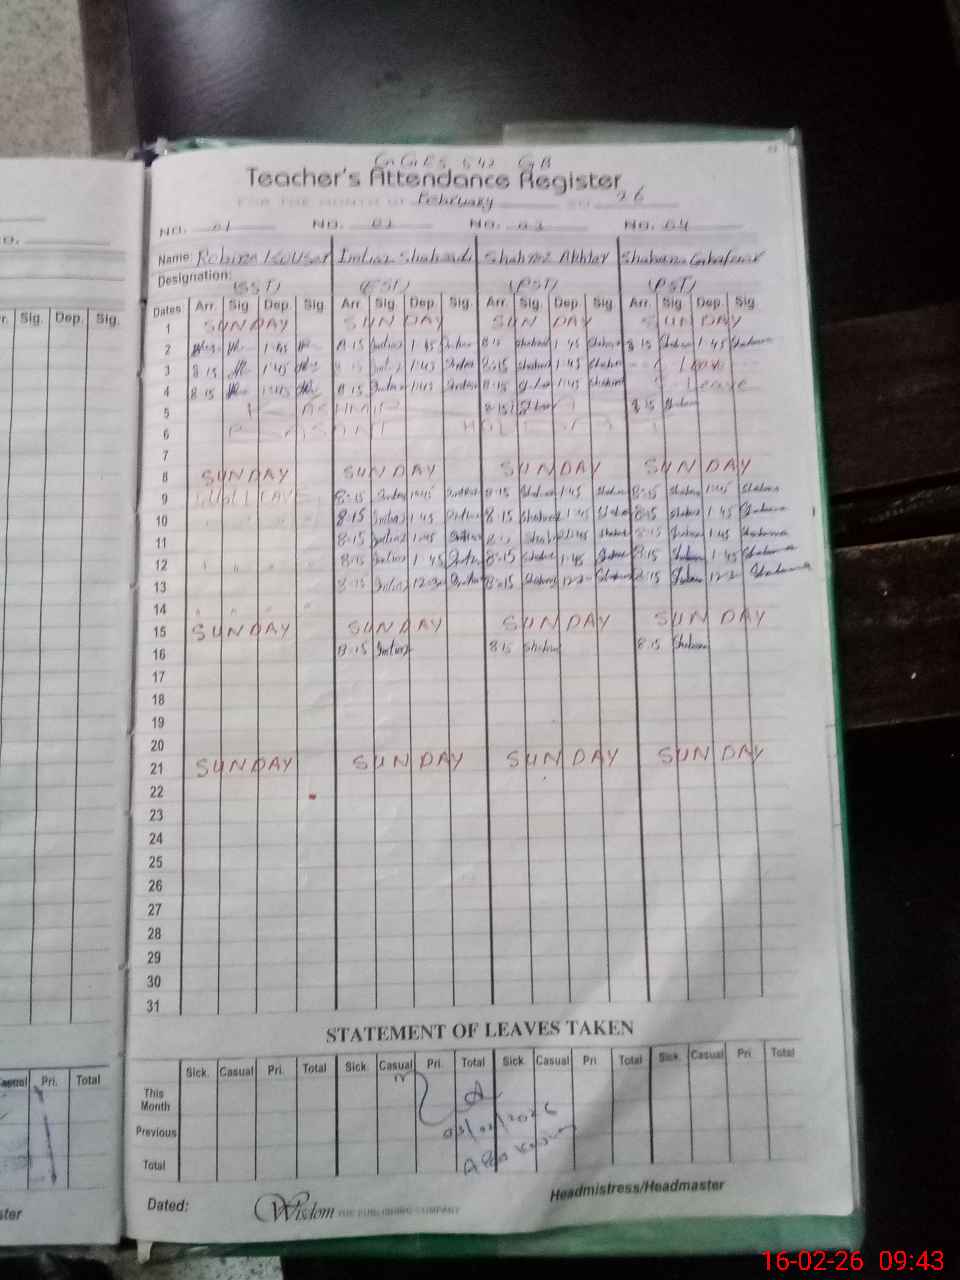 GGES 542 GB
Teacher's Attendance Register
FOR THE MONTH OF February 26
NO. 01 NO. 02 NO. 03 NO. 04
Name: Robina Kousar Imtiaz Shahzadi Shahnaz Akhtar Shabana
Designation: (SST) (EST) (PST) (PST)
Dates Arr. Sig Dep. Sig Arr. Sig. Dep. Sig. Arr. Sig Dep. Sig Arr. Sig Dep. Sig
1 SUNDAY SUNDAY SUNDAY SUNDAY
2 1:45 8:15 Imtiaz 1:45 8:15 Shahnaz 1:45 Shahnaz 8:15 Shabana 1:45 Shabana
3 8:15 1:45 8:15 Imtiaz 1:45 8:15 Shahnaz 1:45 Shahnaz Leave
4 8:15 1:45 8:15 Imtiaz 1:45 8:15 Shahnaz 1:45 Shahnaz Leave
5 KASHMIR DAY 8:15 8:15 Shabana
6 BASANT HOLIDAY
7
8 SUNDAY SUNDAY SUNDAY SUNDAY
9 LEAVE 8:15 Imtiaz 1:45 Imtiaz 8:15 Shahnaz 1:45 Shahnaz 8:15 Shabana 1:45 Shabana
10 8:15 Imtiaz 1:45 Imtiaz 8:15 Shahnaz 1:45 Shahnaz 8:15 Shabana 1:45 Shabana
11 8:15 Imtiaz 1:45 Imtiaz Shahnaz 1:45 Shahnaz 8:15 Shabana 1:45 Shabana
12 8:15 Imtiaz 1:45 Imtiaz 8:15 Shahnaz 1:45 Shahnaz 8:15 Shabana 1:45 Shabana
13 8:15 Imtiaz Imtiaz 8:15 Shahnaz Shahnaz 8:15 Shabana Shabana
14
15 SUNDAY SUNDAY SUNDAY SUNDAY
16 8:15 Imtiaz 8:15 Shahnaz 8:15 Shabana
17
18
19
20
21 SUNDAY SUNDAY SUNDAY SUNDAY
22
23
24
25
26
27
28
29
30
31
STATEMENT OF LEAVES TAKEN
Sick. Casual Pri. Total Sick. Casual Pri. Total Sick. Casual Pri. Total Sick. Casual Pri. Total
This Month
03/02/2026
Previous
Total
Dated: Wisdom THE PUBLISHING COMPANY Headmistress/Headmaster
Sig. Dep. Sig.
Casual Pri. Total
16-02-26 09:43